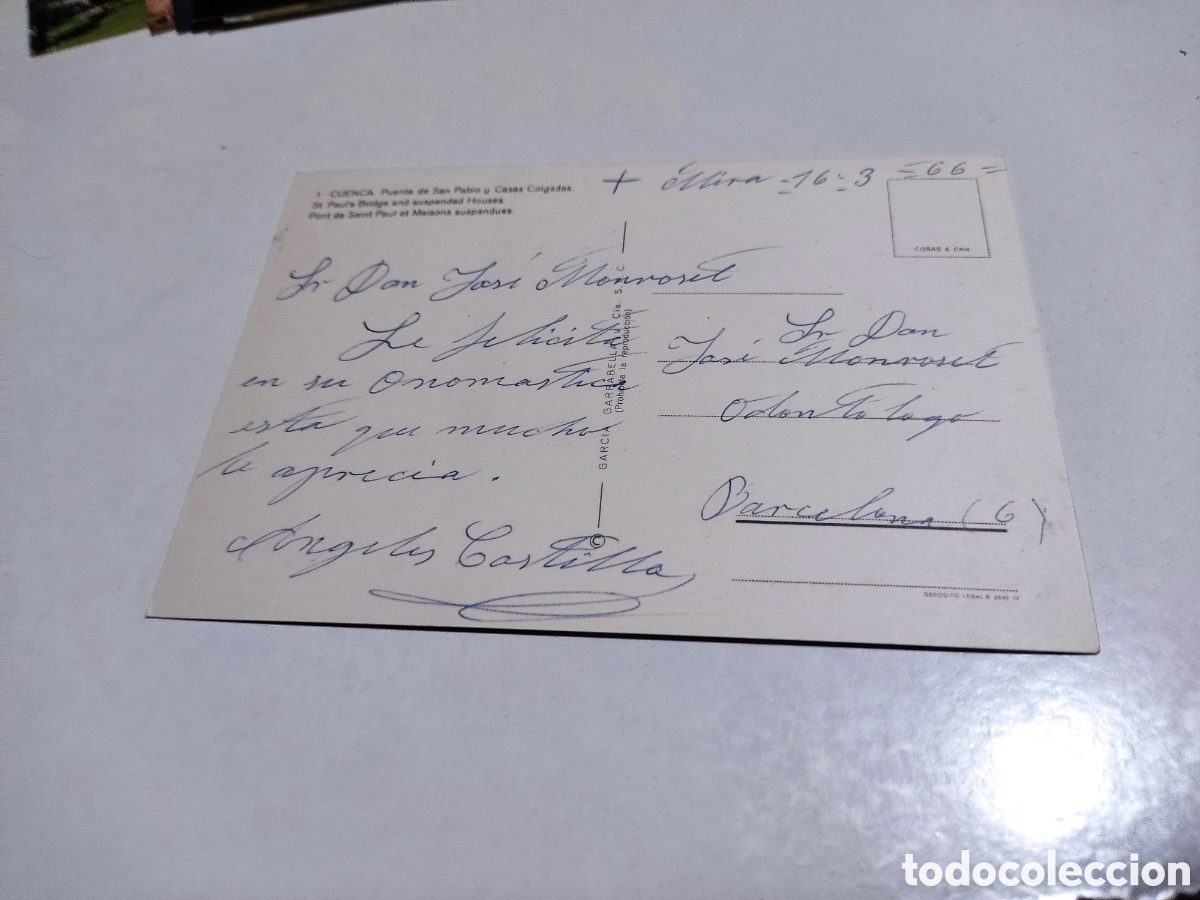 1 - CUENCA. Puente de San Pablo y Casas Colgadas.
St. Paul's Bridge and suspended Houses.
Pont de Saint Paul et Maisons suspendues.
+ Mira - 16 - 3 = 66 =
COBAS & Cnia
Sr Don José Monroset
Le felicita
en su Onomastica
esta que mucho
le aprecia.
Angeles Castilla
© GARCIA GARRABELLA y Cia. S.C.
(Prohibida la reproducción)
Sr Don
José Monroset
Odontologo
Barcelona (6)
DEPOSITO LEGAL B
todocoleccion